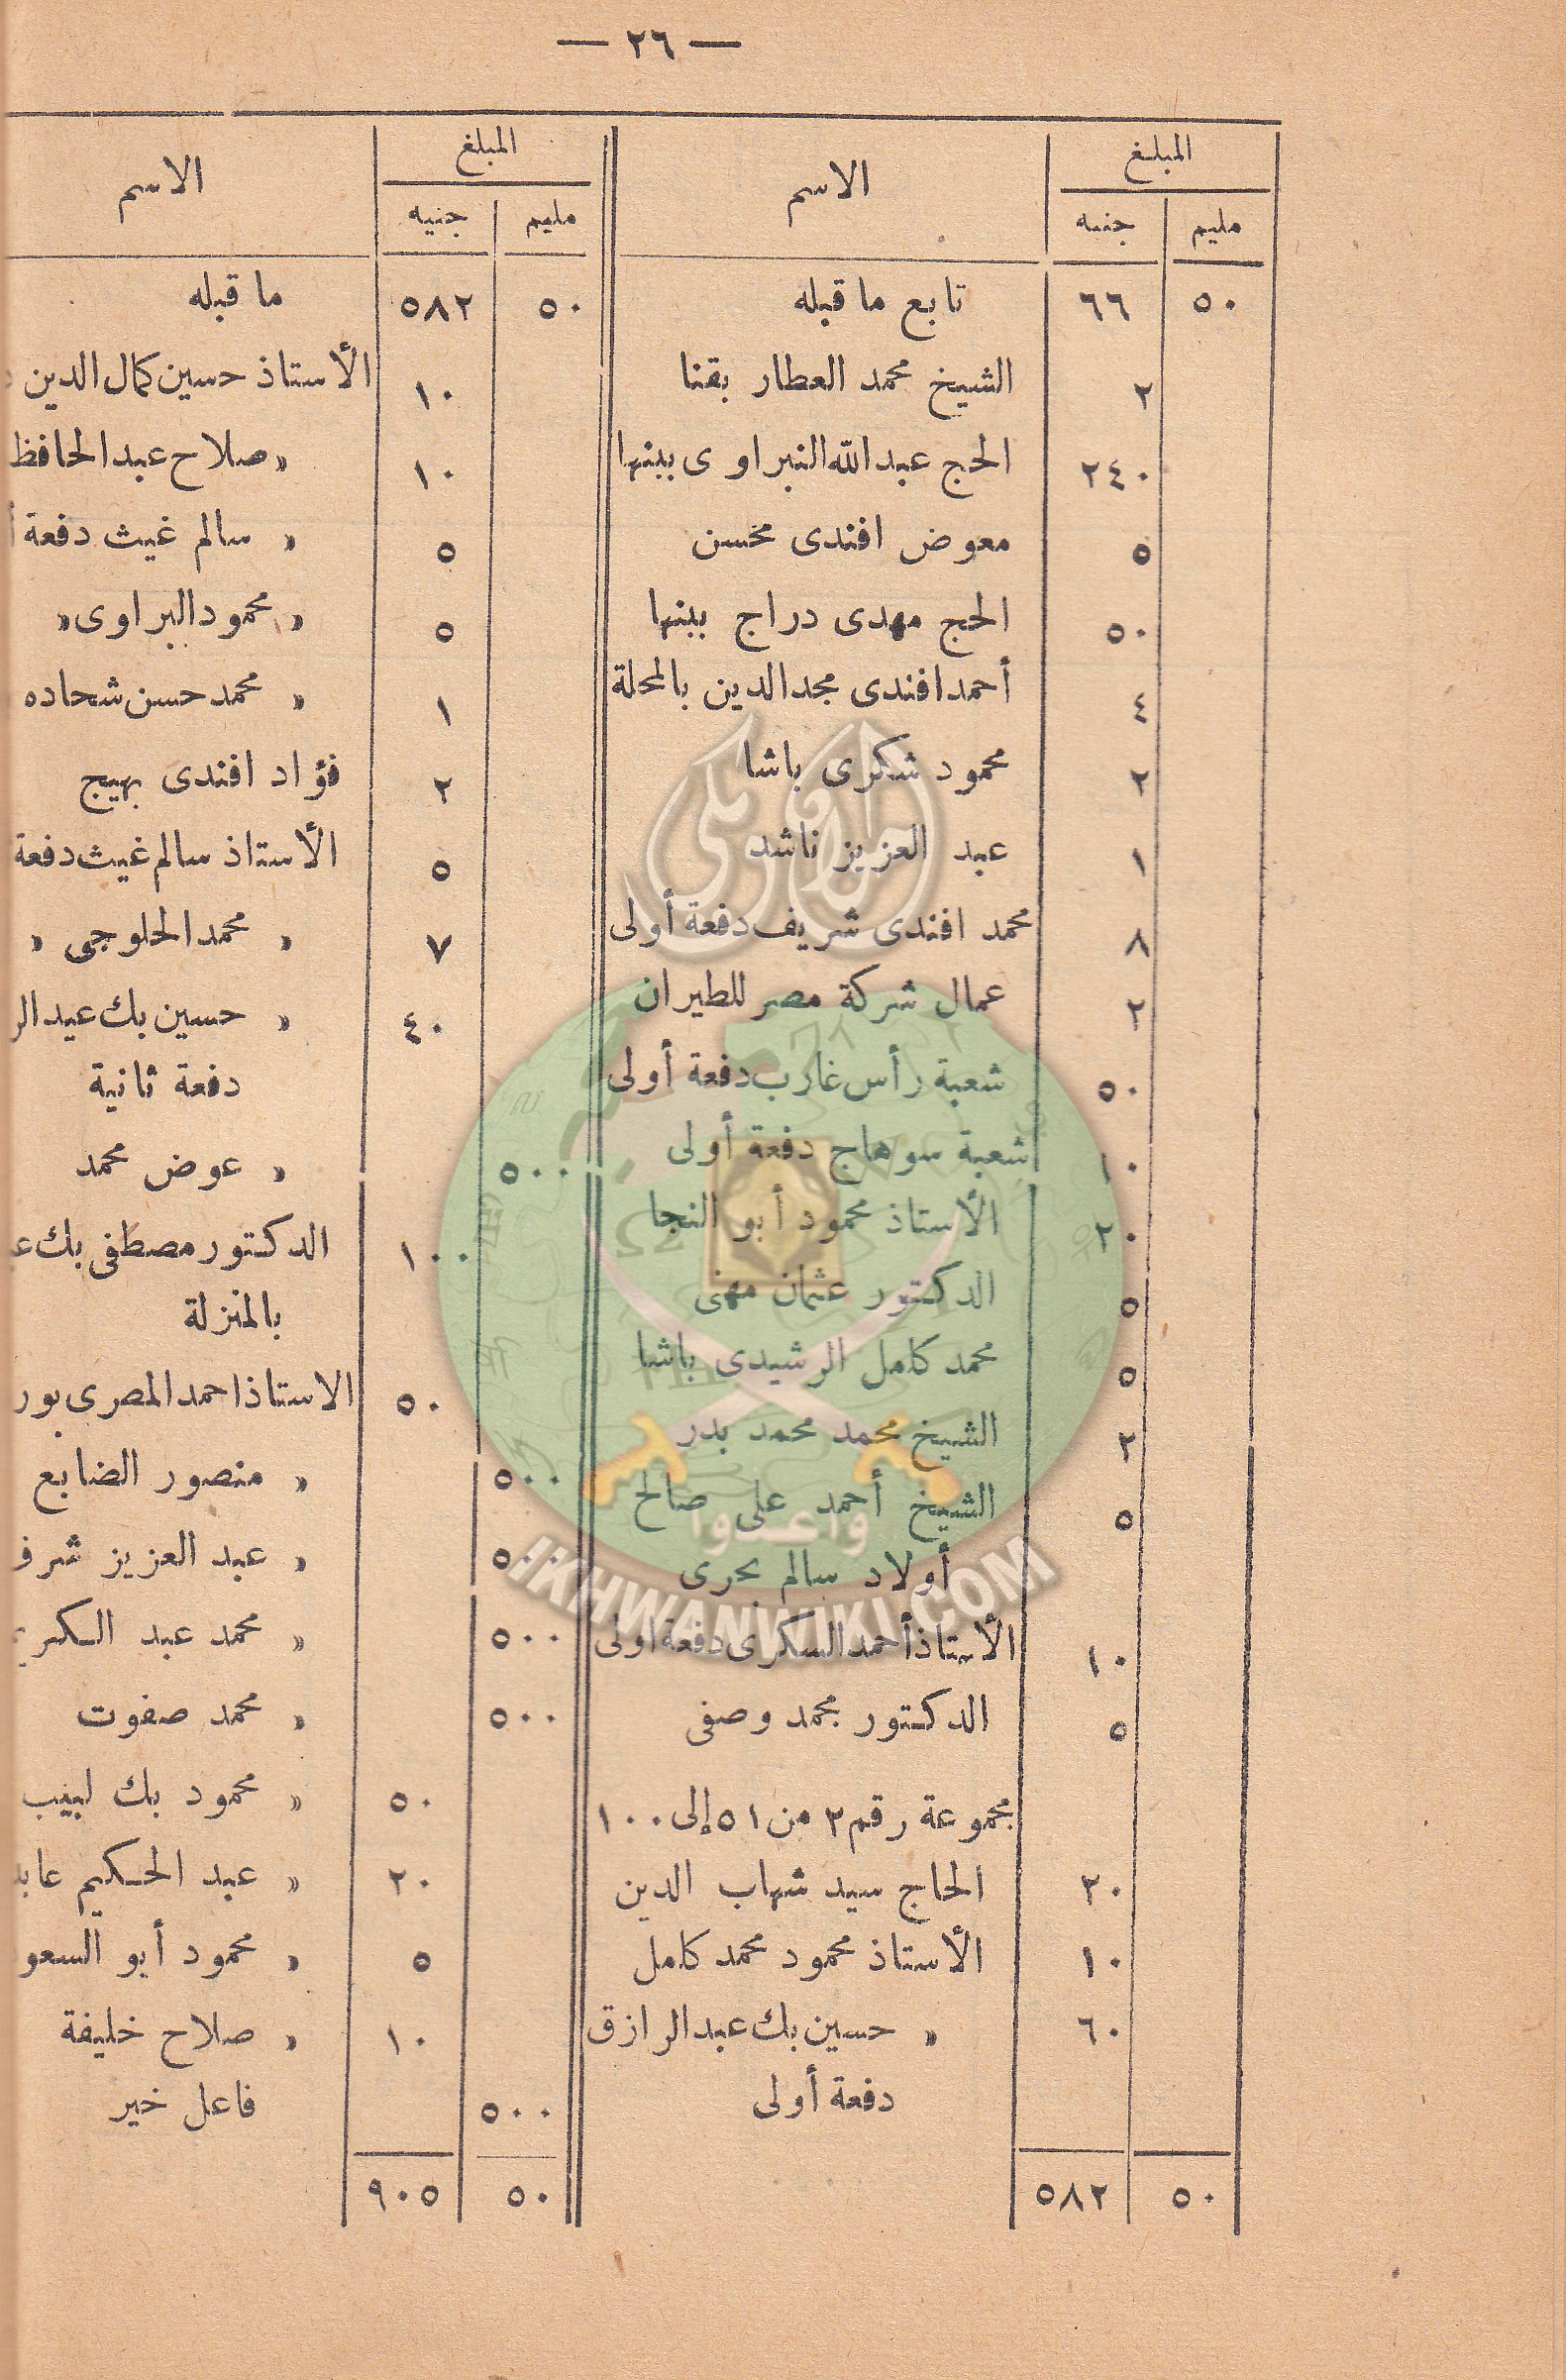 — ٢٦ —
المبلغ الاسم
مليم جنيه
٥٠ ٦٦ تابع ما قبله
٢ الشيخ محمد العطار بقنا
٢٤٠ الحج عبد الله النبراوى ببنها
٥ معوض افندى محسن
٥٠ الحج مهدى دراج ببنها
٤ أحمد افندى مجد الدين بالمحلة
٢ محمود شكرى باشا
١ عبد العزيز ناشد
٨ محمد افندى شريف دفعة أولى
٢ عمال شركة مصر للطيران
٥٠ شعبة رأس غارب دفعة أولى
١٠ شعبة سوهاج دفعة أولى
٢٠ الأستاذ محمود أبو النجا
٥ الدكتور عثمان مهنى
٥ محمد كامل الرشيدى باشا
٢ الشيخ محمد محمد بدر
٥ الشيخ أحمد على صالح
أولاد سالم بحرى
١٠ الأستاذ أحمد السكرى دفعة أولى
٥ الدكتور محمد وصفى
مجموعة رقم ٢ من ٥١ إلى ١٠٠
٢٠ الحاج سيد شهاب الدين
١٠ الأستاذ محمود محمد كامل
٦٠ » حسين بك عبد الرازق
دفعة أولى
٥٠ ٥٨٢
المبلغ الاسم
مليم جنيه
٥٠ ٥٨٢ ما قبله
١٠ الأستاذ حسين كمال الدين
١٠ » صلاح عبد الحافظ
٥ » سالم غيث دفعة
٥ » محمود البراوى »
١ » محمد حسن شحاده
٢ فؤاد افندى بهيج
٥ الأستاذ سالم غيث دفعة
٧ » محمد الحلوجى »
٤٠ » حسين بك عبد الر
دفعة ثانية
٥٠٠ » عوض محمد
١٠٠ الدكتور مصطفى بك
بالمنزلة
٥٠ الاستاذ احمد المصرى بور
٥٠٠ » منصور الضابع
٥٠٠ » عبد العزيز شرف
٥٠٠ » محمد عبد الكر
٥٠٠ » محمد صفوت
٥٠ » محمود بك لبيب
٢٠ » عبد الحكيم عابد
٥ » محمود أبو السعو
١٠ » صلاح خليفة
٥٠٠ فاعل خير
٥٠ ٩٠٥
وأعدوا
IKHWANWIKI.COM